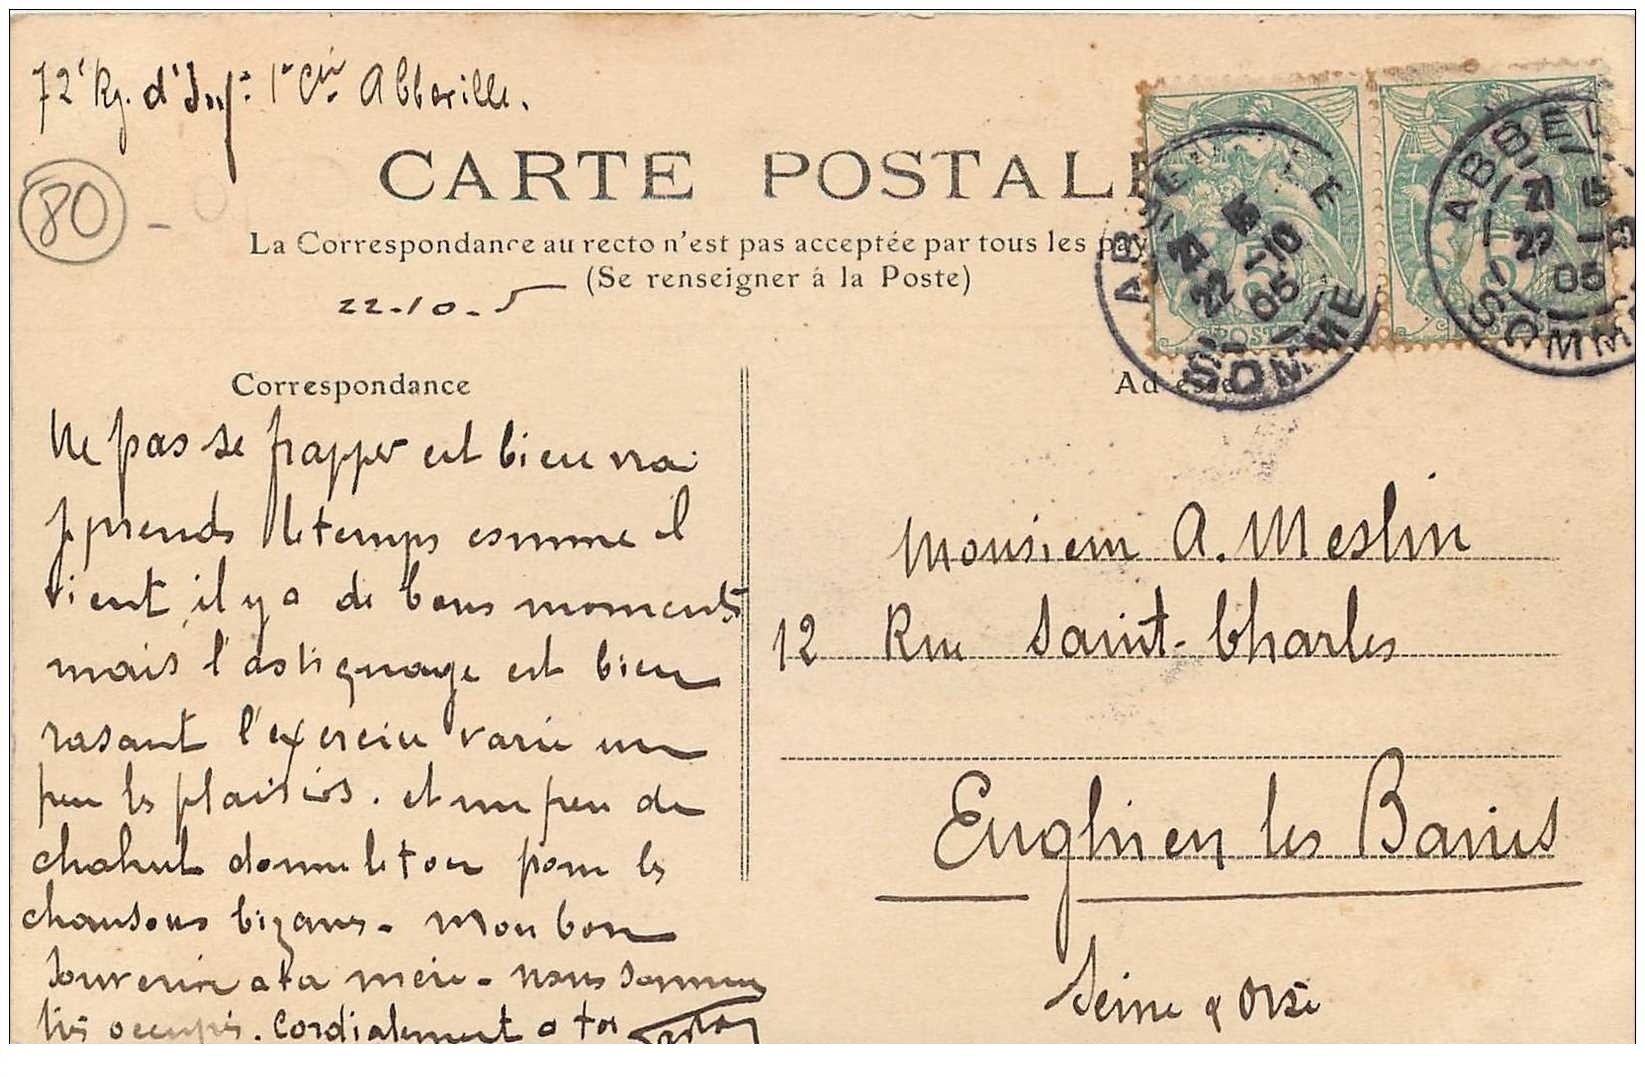 72e Rg. d'Inf. 1e Cie Abbeville.
80
CARTE POSTALE
La Correspondance au recto n'est pas acceptée par tous les pay
(Se renseigner à la Poste)
22-10-5
ABBEVILLE
22 -10
05
SOMME
ABBEVILLE
22 -10
05
SOMME
POSTES
Correspondance
Ne pas se frapper est bien vrai
j prends le temps comme il
vient, il y a de bons moments
mais l'astiquage est bien
rasant l'exercice varie un
peu les plaisirs. et un peu de
chahut donne le ton pour les
chansons bizares. Mon bon
souvenir a ta mère. nous sommes
très occupés. Cordialement a toi
Adresse
Monsieur A. Meslin
12 Rue Saint-Charles
Enghien les Bains
Seine & Oise